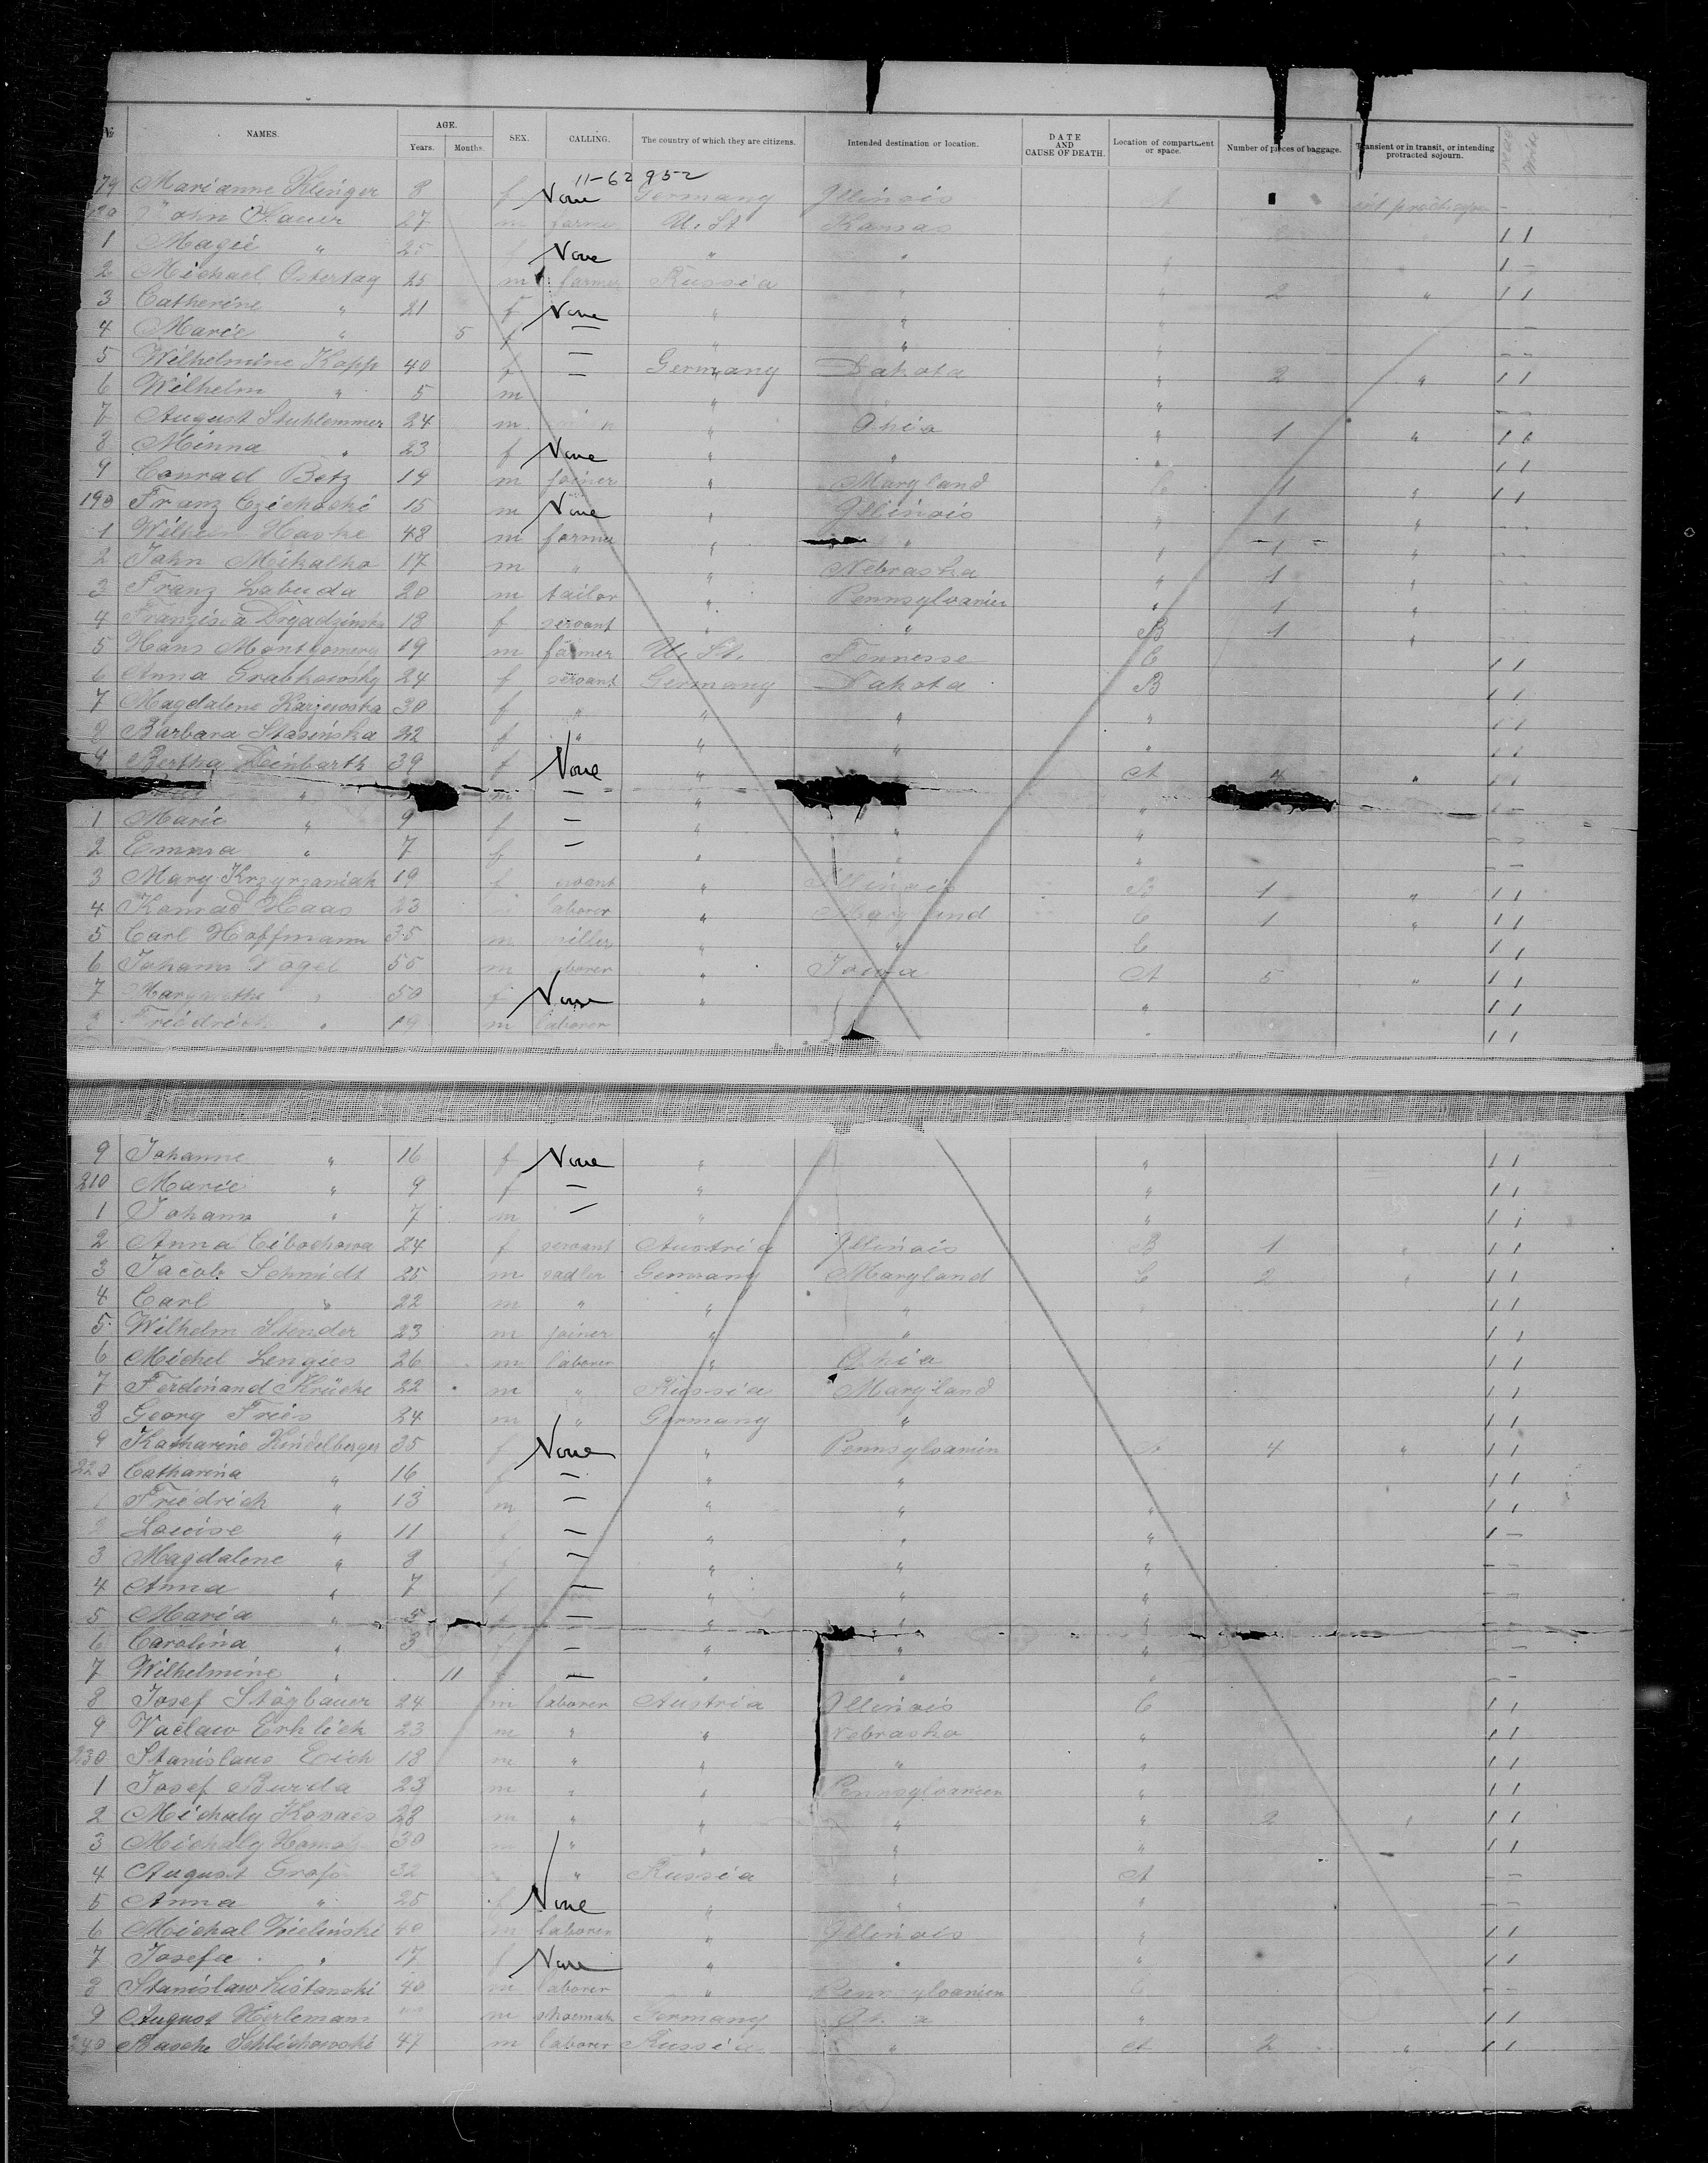 No NAMES. AGE. Years. Months. SEX. CALLING. The country of which they are citizens. Intended destination or location. DATE AND CAUSE OF DEATH. Location of compartment or space. Number of pieces of baggage. Transient or in transit, or intending protracted sojourn.
11-62952
79 Marianne Klinger 8 f None Germany Illinois A
John 27 m farmer U. St Kansas 11
1 Magie " 25 None " " 1 -
2 Michael Ostertag 25 m farmer Russia " " 2 " 11
3 Catherine " 21 f None " " " -
4 Marie " 5 f — " " " - -
5 Wilhelmine Kopp 40 f — Germany Dakota " 2 " 11
6 Wilhelm " 5 m " " - -
7 August Stuhlemmer 24 m " Ohio " 1 " 11
8 Minna " 23 f None " " " 11
9 Conrad Betz 19 m joiner " Maryland C 1 " 11
190 Franz Czichoski 15 m None " Illinois " 1 " - -
1 Wilhelm Haske 48 m farmer " " " 1 " - -
2 John Mikalka 17 m " " Nebraska " 1 " - -
3 Franz Labuda 20 m tailor " Pennsylvanien " 1 "
4 18 f servant " " B 1 "
5 Hans Montgomery 19 m farmer U. St. Tennesse C 11
6 Anna Grabkowsky 24 f servant Germany Dakota B 11
7 Magdalene 30 f " " " " 11
8 Barbara Stasinska 22 f " " " " 11
9 Bertha Deinbarth 39 f None " A 4 " 11
" m — " " 1 -
1 Marie " 9 f — " " " - -
2 Emma " 7 f — " " " - -
3 Mary Krzyrzaniak 19 f servant " Illinois B 1 " 11
4 Konrad Haas 23 laborer " Maryland C 1 " 11
5 Carl Hoffmann 35 m " " C 11
6 Johann Vogel 55 m laborer " Iowa A 5 " 11
7 Margarethe " 50 f None " " 11
8 Friedrich " 19 m laborer " 11
9 Johanne " 16 f None " " 11
210 Marie " 9 f — " " 11
1 Johann " 7 m — " " 11
2 Anna Cibochowa 24 f servant Austria Illinois B 1 " 11
3 Jacob Schmidt 25 m sadler Germany Maryland C 2 " 11
4 Carl " 22 m " " " 11
5 Wilhelm Stender 23 m joiner " " 11
6 Michel Lengies 26 m laborer " Ohio 11
7 Ferdinand Krücke 22 m " Russia Maryland 11
8 Georg Fries 24 m " Germany " 11
9 Katharine Kindelberger 35 f None " Pennsylvanien A 4 " 11
220 Catharina " 16 f — " " 11
1 Friedrich " 13 m — " " " 11
2 Louise " 11 f — " " " 1 -
3 Magdalene " 8 f — " " " - -
4 Anna " 7 f — " " " - -
5 Maria " 5 f — " " "
6 Carolina " 3 — " " " -
7 Wilhelmine " 11 f — " " " - -
8 Josef Stögbauer 24 m laborer Austria Illinois C 11
9 Vaclaw Erhlich 23 m " " Nebraska " 11
230 Stanislaus Eich 18 m " " " " 11
1 Josef Burda 23 m " " Pennsylvanien " 11
2 Michaly Kovacs 28 m " " " " 2 " 11
3 Michaly 30 m " " " " 11
4 August 32 " Russia " A - -
5 Anna " 25 f None " " " - -
6 Michal Zielinski 40 m laborer " Illinois " 11
7 Josefa " 17 f None " " " 11
8 Stanislaw 40 m laborer " Pennsylvanien C - -
9 August Herlemann m shoemak Germany " 11
240 Schlichowski 47 m laborer Russia " A 2 " 11